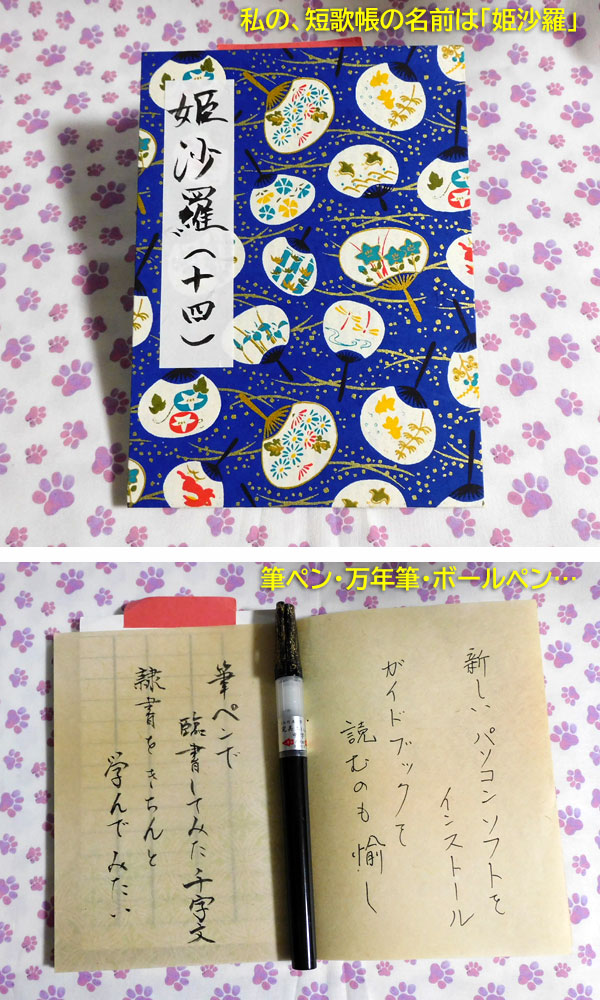 私の、短歌帳の名前は「姫沙羅」
姫沙羅(十四)
筆ペン・万年筆・ボールペン…
新しいパソコンソフトを
インストール
ガイドブックを
読むのも愉し
筆ペンで
臨書してみた千字文
隷書をきちんと
学んでみたい